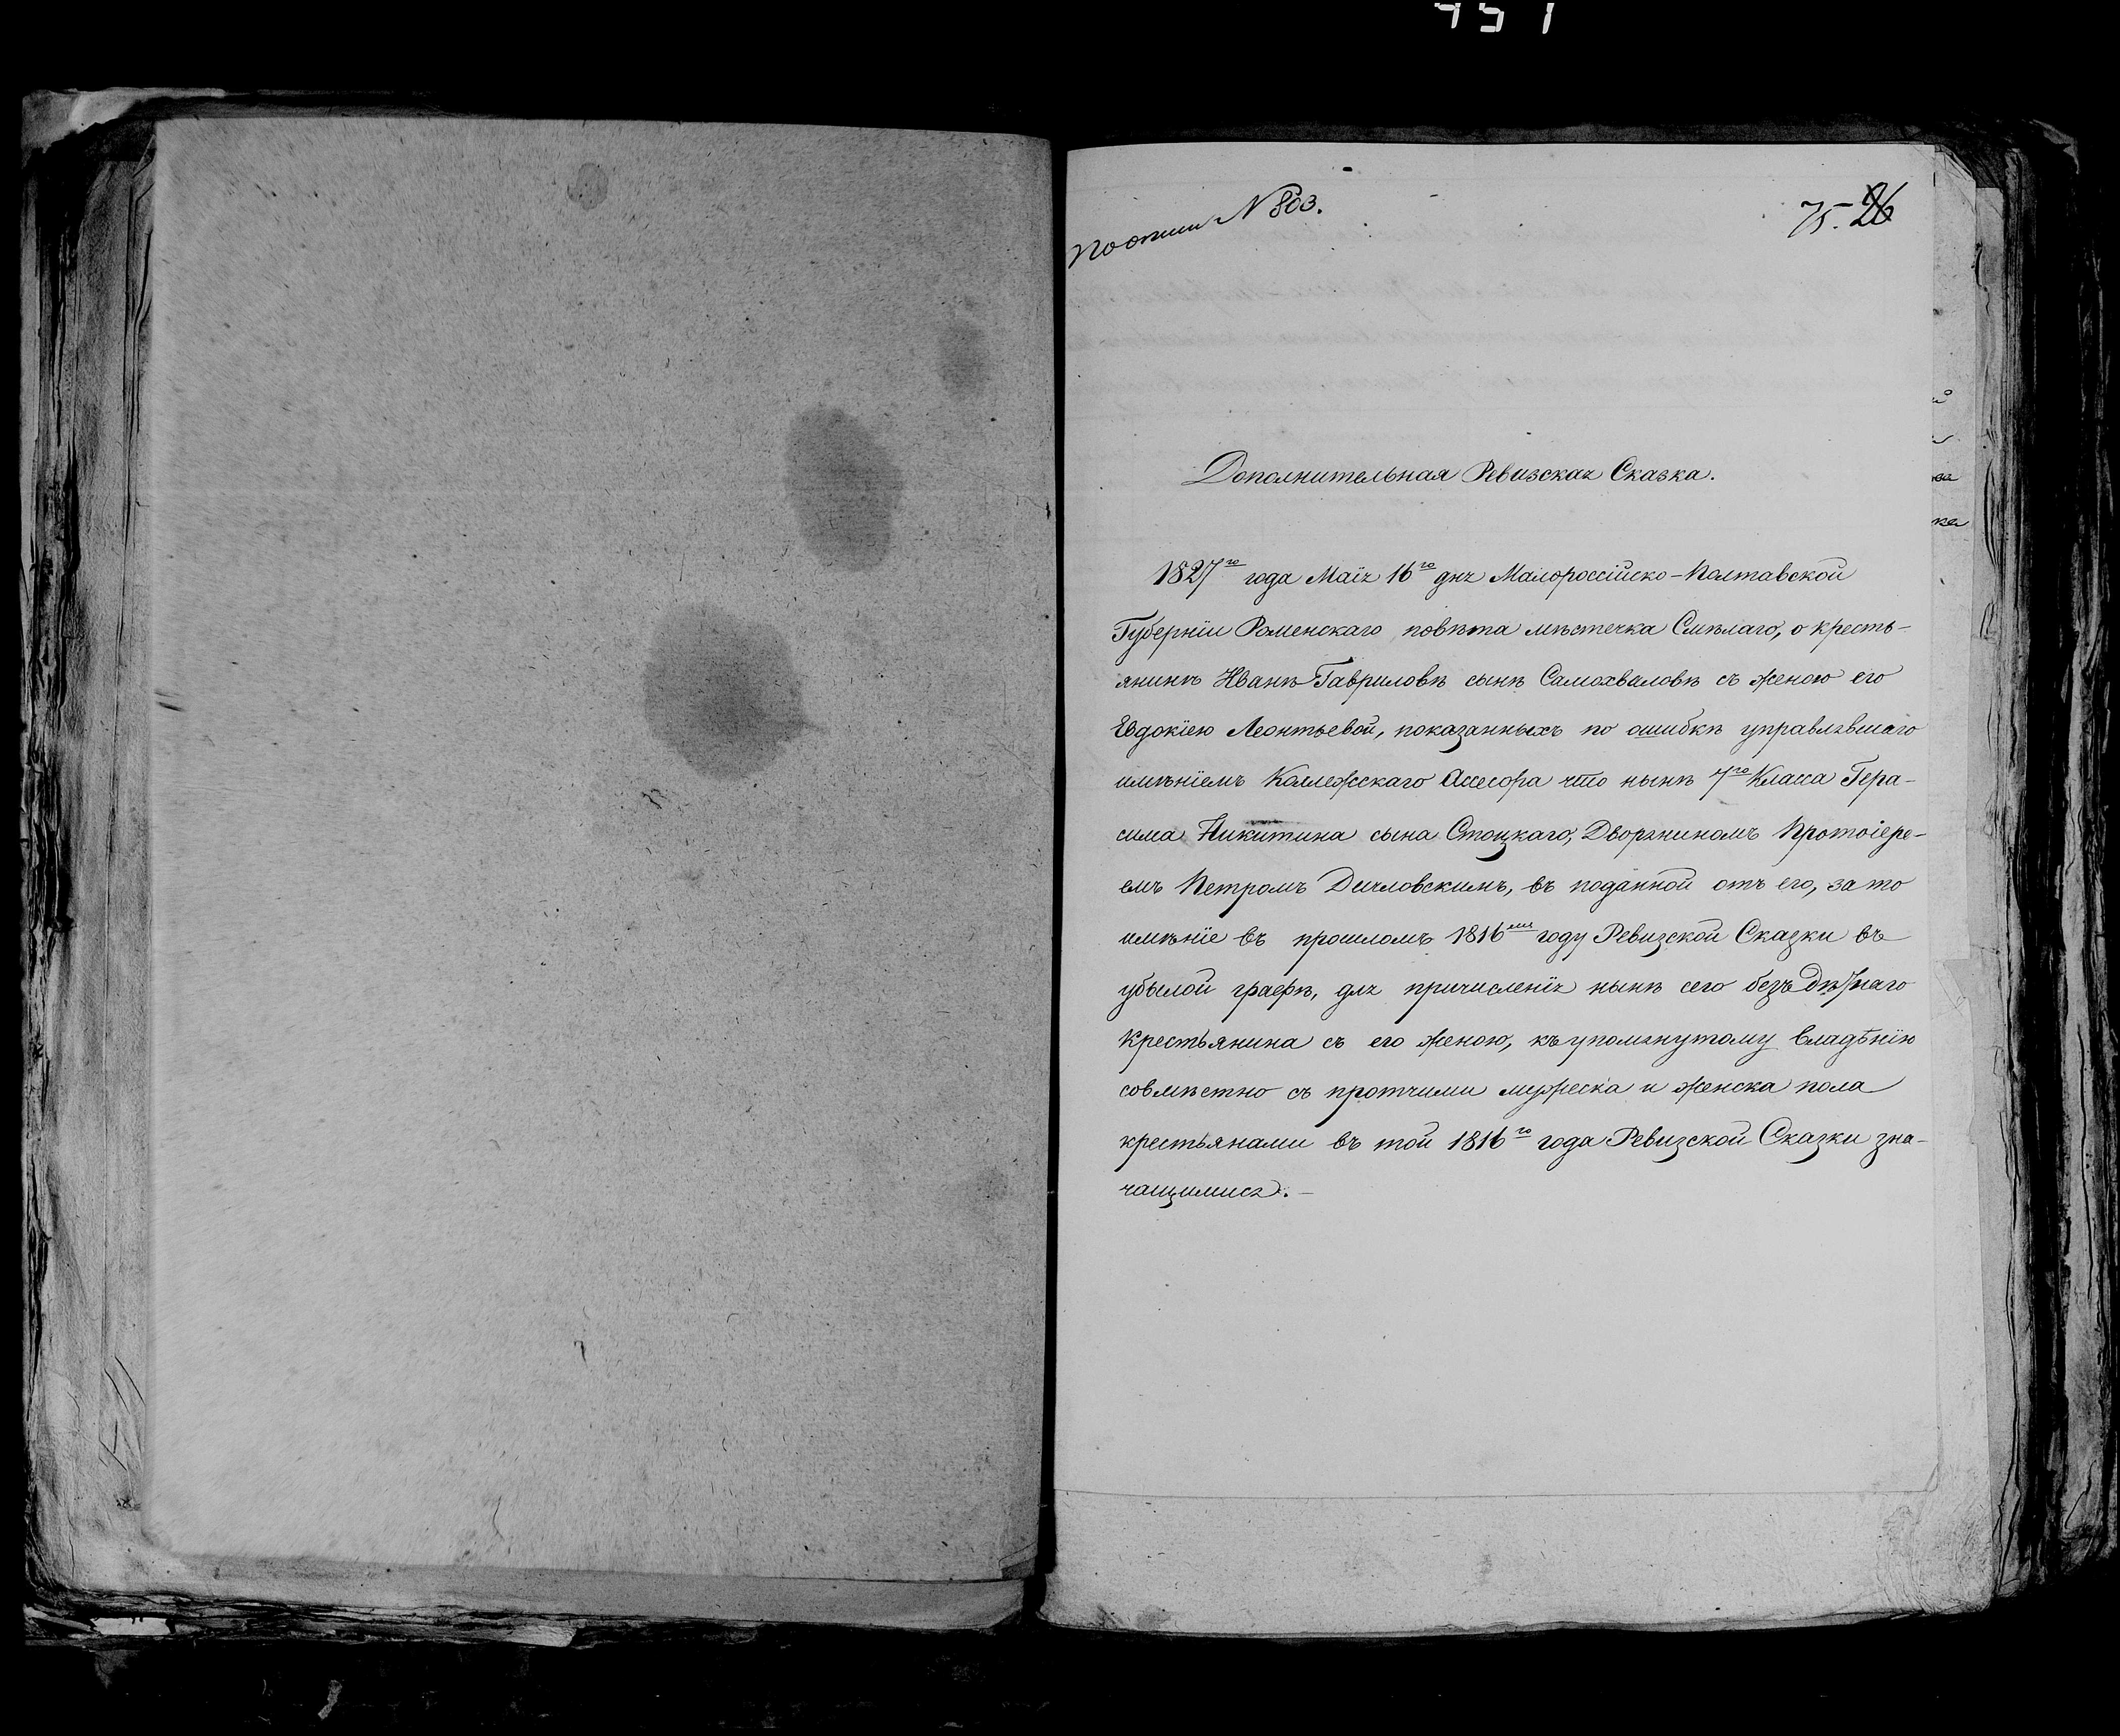 457
по описи N 803.
75. 26
Дополнительная Ревизская Сказка.
1827го года Маія 16го дня Малороссійско-Полтавской
Губерніи Роменскаго повѣта мѣстечка Смѣлаго, о кресть-
янинѣ Иванѣ Гавриловѣ сынѣ Самохваловѣ съ женою его
Евдокіею Леонтьевой, показанныхъ по ошибкѣ управлявшаго
имѣніемъ Коллежскаго Ассесора что нынѣ 7го Класса Гера-
сима Никитина сына Стоцкаго, Дворяниномъ Протоіере-
емъ Петромъ, въ поданной отъ его, за то
имѣніе въ прошломъ 1816мъ году Ревизской Сказки въ
убылой графѣ, для причисленія нынѣ сего
крестьянина съ его женою, къ упомянутому владѣнію
совмѣстно съ протчими мужеска и женска пола
крестьянами въ той 1816го года Ревизской Сказки зна-
чащимися.-